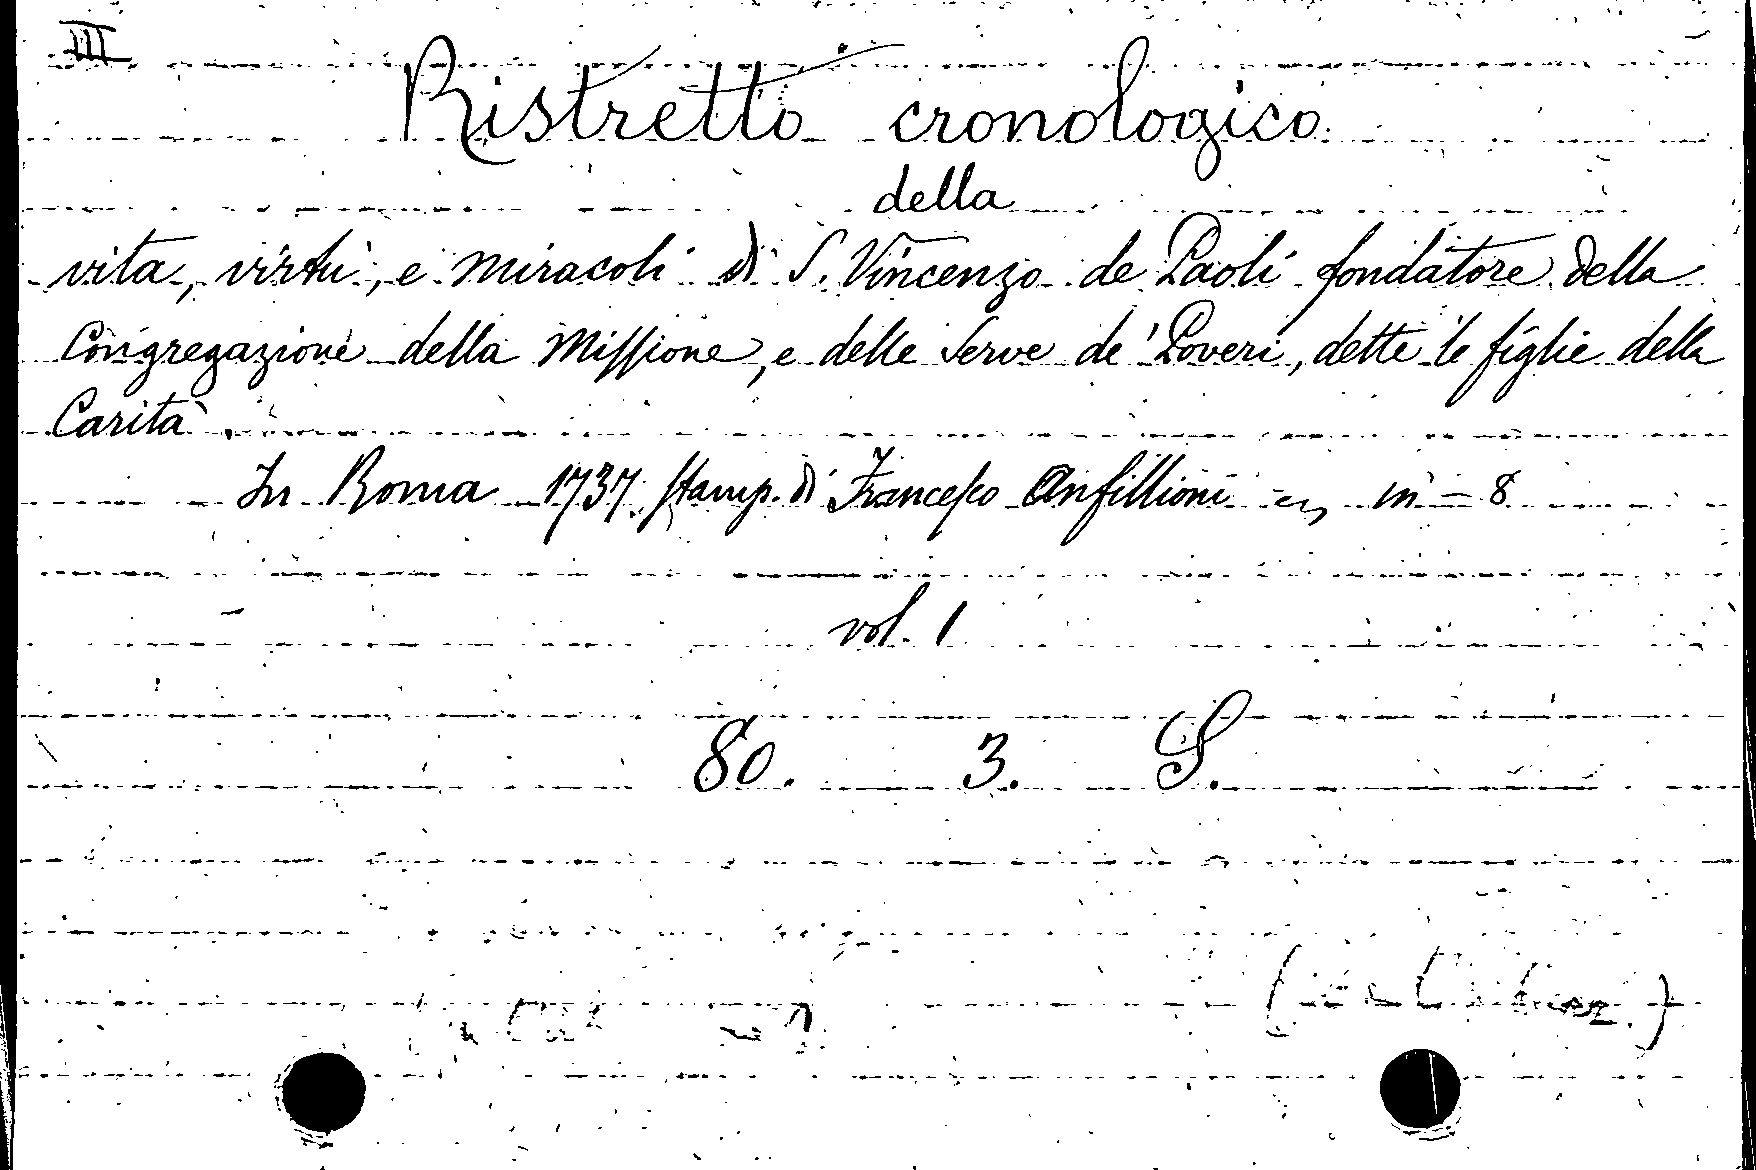 III
Ristretto cronologico
della
vita, virtù, e miracoli di S. Vincenzo de Paoli fondatore della
Congregazione della Missione, e delle Serve de' Poveri, dette le figlie della
Carità.
In Roma 1737. Stamp. di Francesco Ansillioni in - 8
vol. 1
80. 3. S.